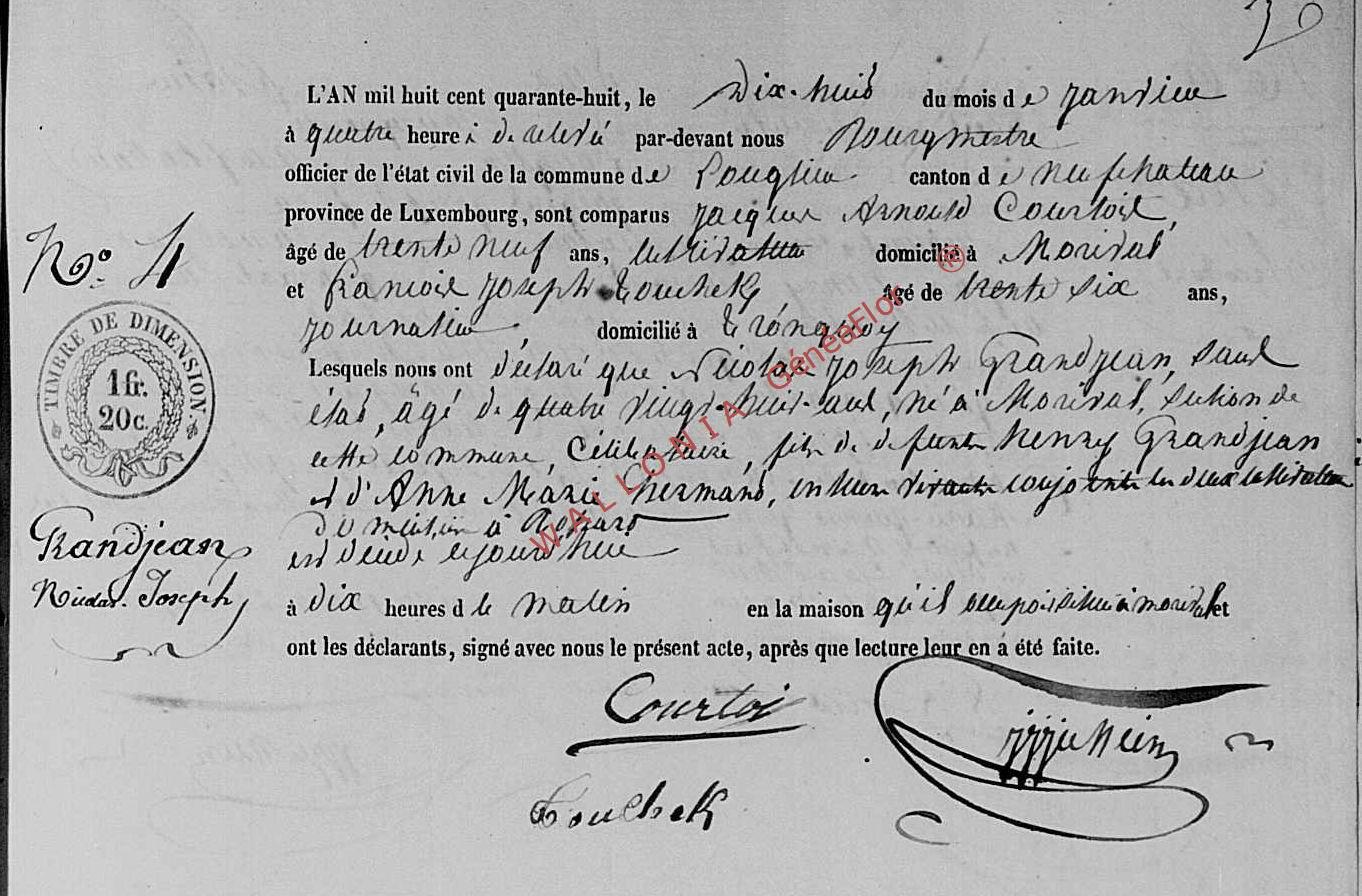 L'AN mil huit cent quarante-huit, le Dix-huit du mois de janvier
à quatre heures de relevé par-devant nous Bourgmestre
officier de l'état civil de la commune de Longlier canton de neufchateau
province de Luxembourg, sont comparus jacques Arnould Courtois,
âgé de trente neuf ans, cultivateur domicilié à Morival
et francois joseph Touchek âgé de trente six ans,
journalier, domicilié à tronquoy
Lesquels nous ont déclaré que Nicolas joseph Grandjean, sans
état, âgé de quatre vingt-huit ans, né à Morival, section de
cette commune, Célibataire, fils de defunts henry Grandjean
et d'Anne Marie hermand, en leur vivant conjoints les deux cultivateurs
est décédé cejourd'huie
à dix heures d le matin en la maison qu'il occupoit située à morival et
ont les déclarants, signé avec nous le présent acte, après que lecture leur en à été faite.
N.° 4
TIMBRE DE DIMENSION.
1 fr.
20 c.
Grandjean
Nicolas-Joseph
Courtois
Touchek
WALLONIA GénéaFlor ®